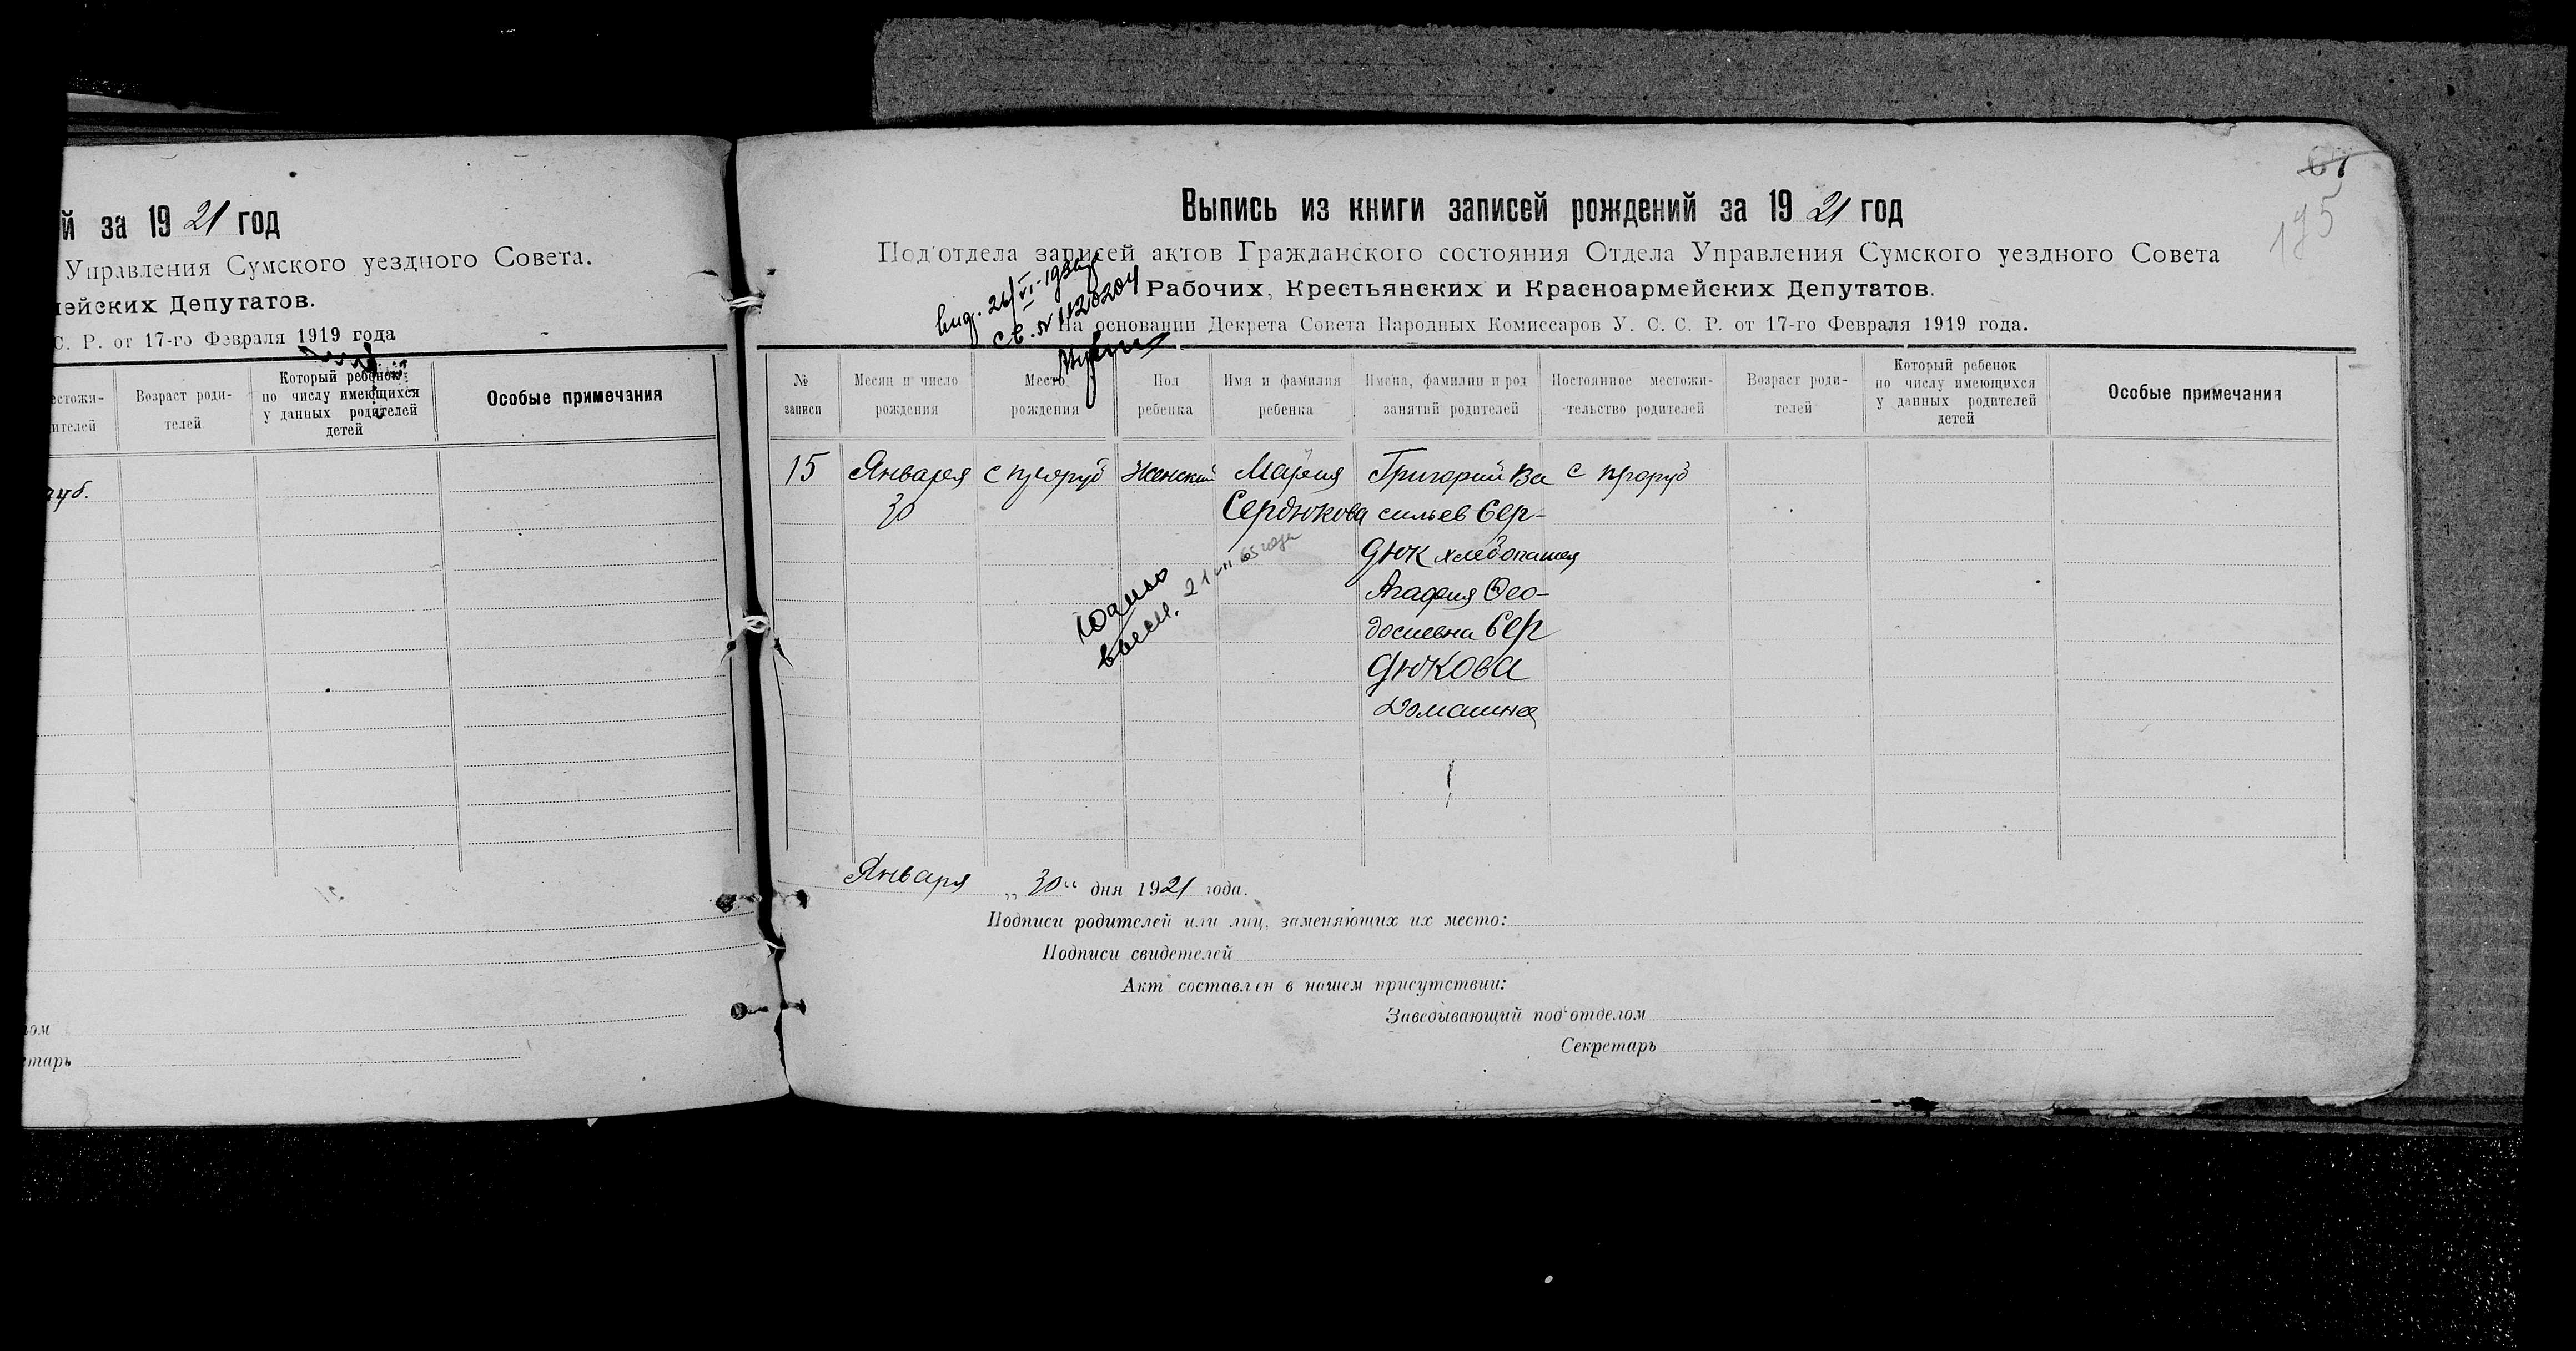 й за 1921 год
Управления Сумского уездного Совета.
мейских Депутатов.
С. Р. от 17-го Февраля 1919 года
естожи-
ителей
Возраст роди-
телей
Который ребенок
по числу имеющихся
у данных родителей
детей
Особые примечания
уб.
ом
етарь
67
195
Выпись из книги записей рождений за 1921 год
Под'отдела записей актов Гражданского состояния Отдела Управления Сумского уездного Совета
Рабочих, Крестьянских и Красноармейских Депутатов.
На основании Декрета Совета Народных Комиссаров У. С. С. Р. от 17-го Февраля 1919 года.
№
записи
Месяц и число
рождения
Место
рождения
Пол
ребенка
Имя и фамилия
ребенка
Имена, фамилии и род
занятий родителей
Постоянное местожи-
тельство родителей
Возраст роди-
телей
Который ребенок
по числу имеющихся
у данных родителей
детей
Особые примечания
15
Января
30
с
Женский
Мария
Сердюкова
Григорий Ва
сильев Сер-
дюк хлебопашец
Агафия Фео-
досиевна Сер
дюкова
Домашнея
с
Января „30“ дня 1921 года.
Подписи родителей или лиц, заменяющих их место:
Подписи свидетелей
Акт составлен в нашем присутствии:
Заведывающий под'отделом
Секретарь